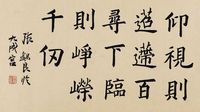 仰視則
迢遰百
尋下臨
則崢嶸
千仞